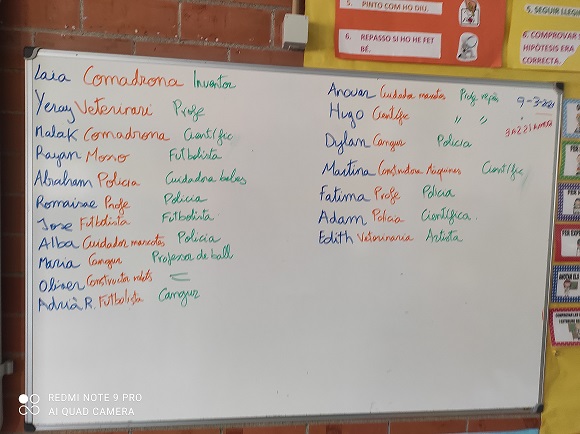 5. PINTO COM HO DIU.
6. REPASSO SI HO HE FET BÉ.
5. SEGUIR LLEGI
6. COMPROVAR
HIPÒTESIS ERA
CORRECTA.
Laia Comadrona Inventor
Yeray Veterinari Profe
Malak Comadrona Científic
Rayan Futbolista
Abraham Policia Cuidadora
Romaissae Profe Policia
Jose Futbolista Futbolista
Alba Cuidador mascotes Policia
Maria Cangur Professor de ball
Oliver Constructor robots
Adrià R. Futbolista Cangur
Anouar Cuidador mascotes Profe repàs
9-3-221
Hugo Científic " "
Dylan Cangur Policia
Martina Constructora Màquines Científic
Fatima Profe Policia
Adam Policia Científica.
Edith Veterinaria Artista
REDMI NOTE 9 PRO
AI QUAD CAMERA